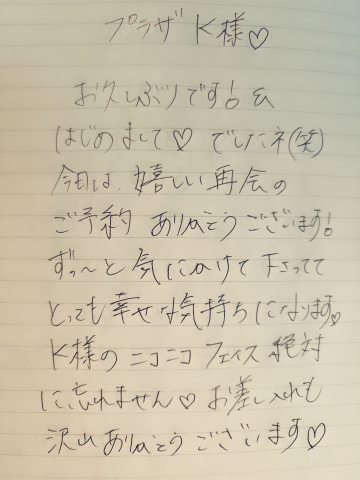 プラザ K様♡
お久しぶりです! &
はじめまして♡ でしたネ(笑)
今日は、嬉しい再会の
ご予約 ありがとうございます!
ずっ〜と気にかけて下さってて
とっても幸せな気持ちになります♡
K様のニコニコフェイス絶対
に忘れません♡ お差し入れも
沢山ありがとうございます♡